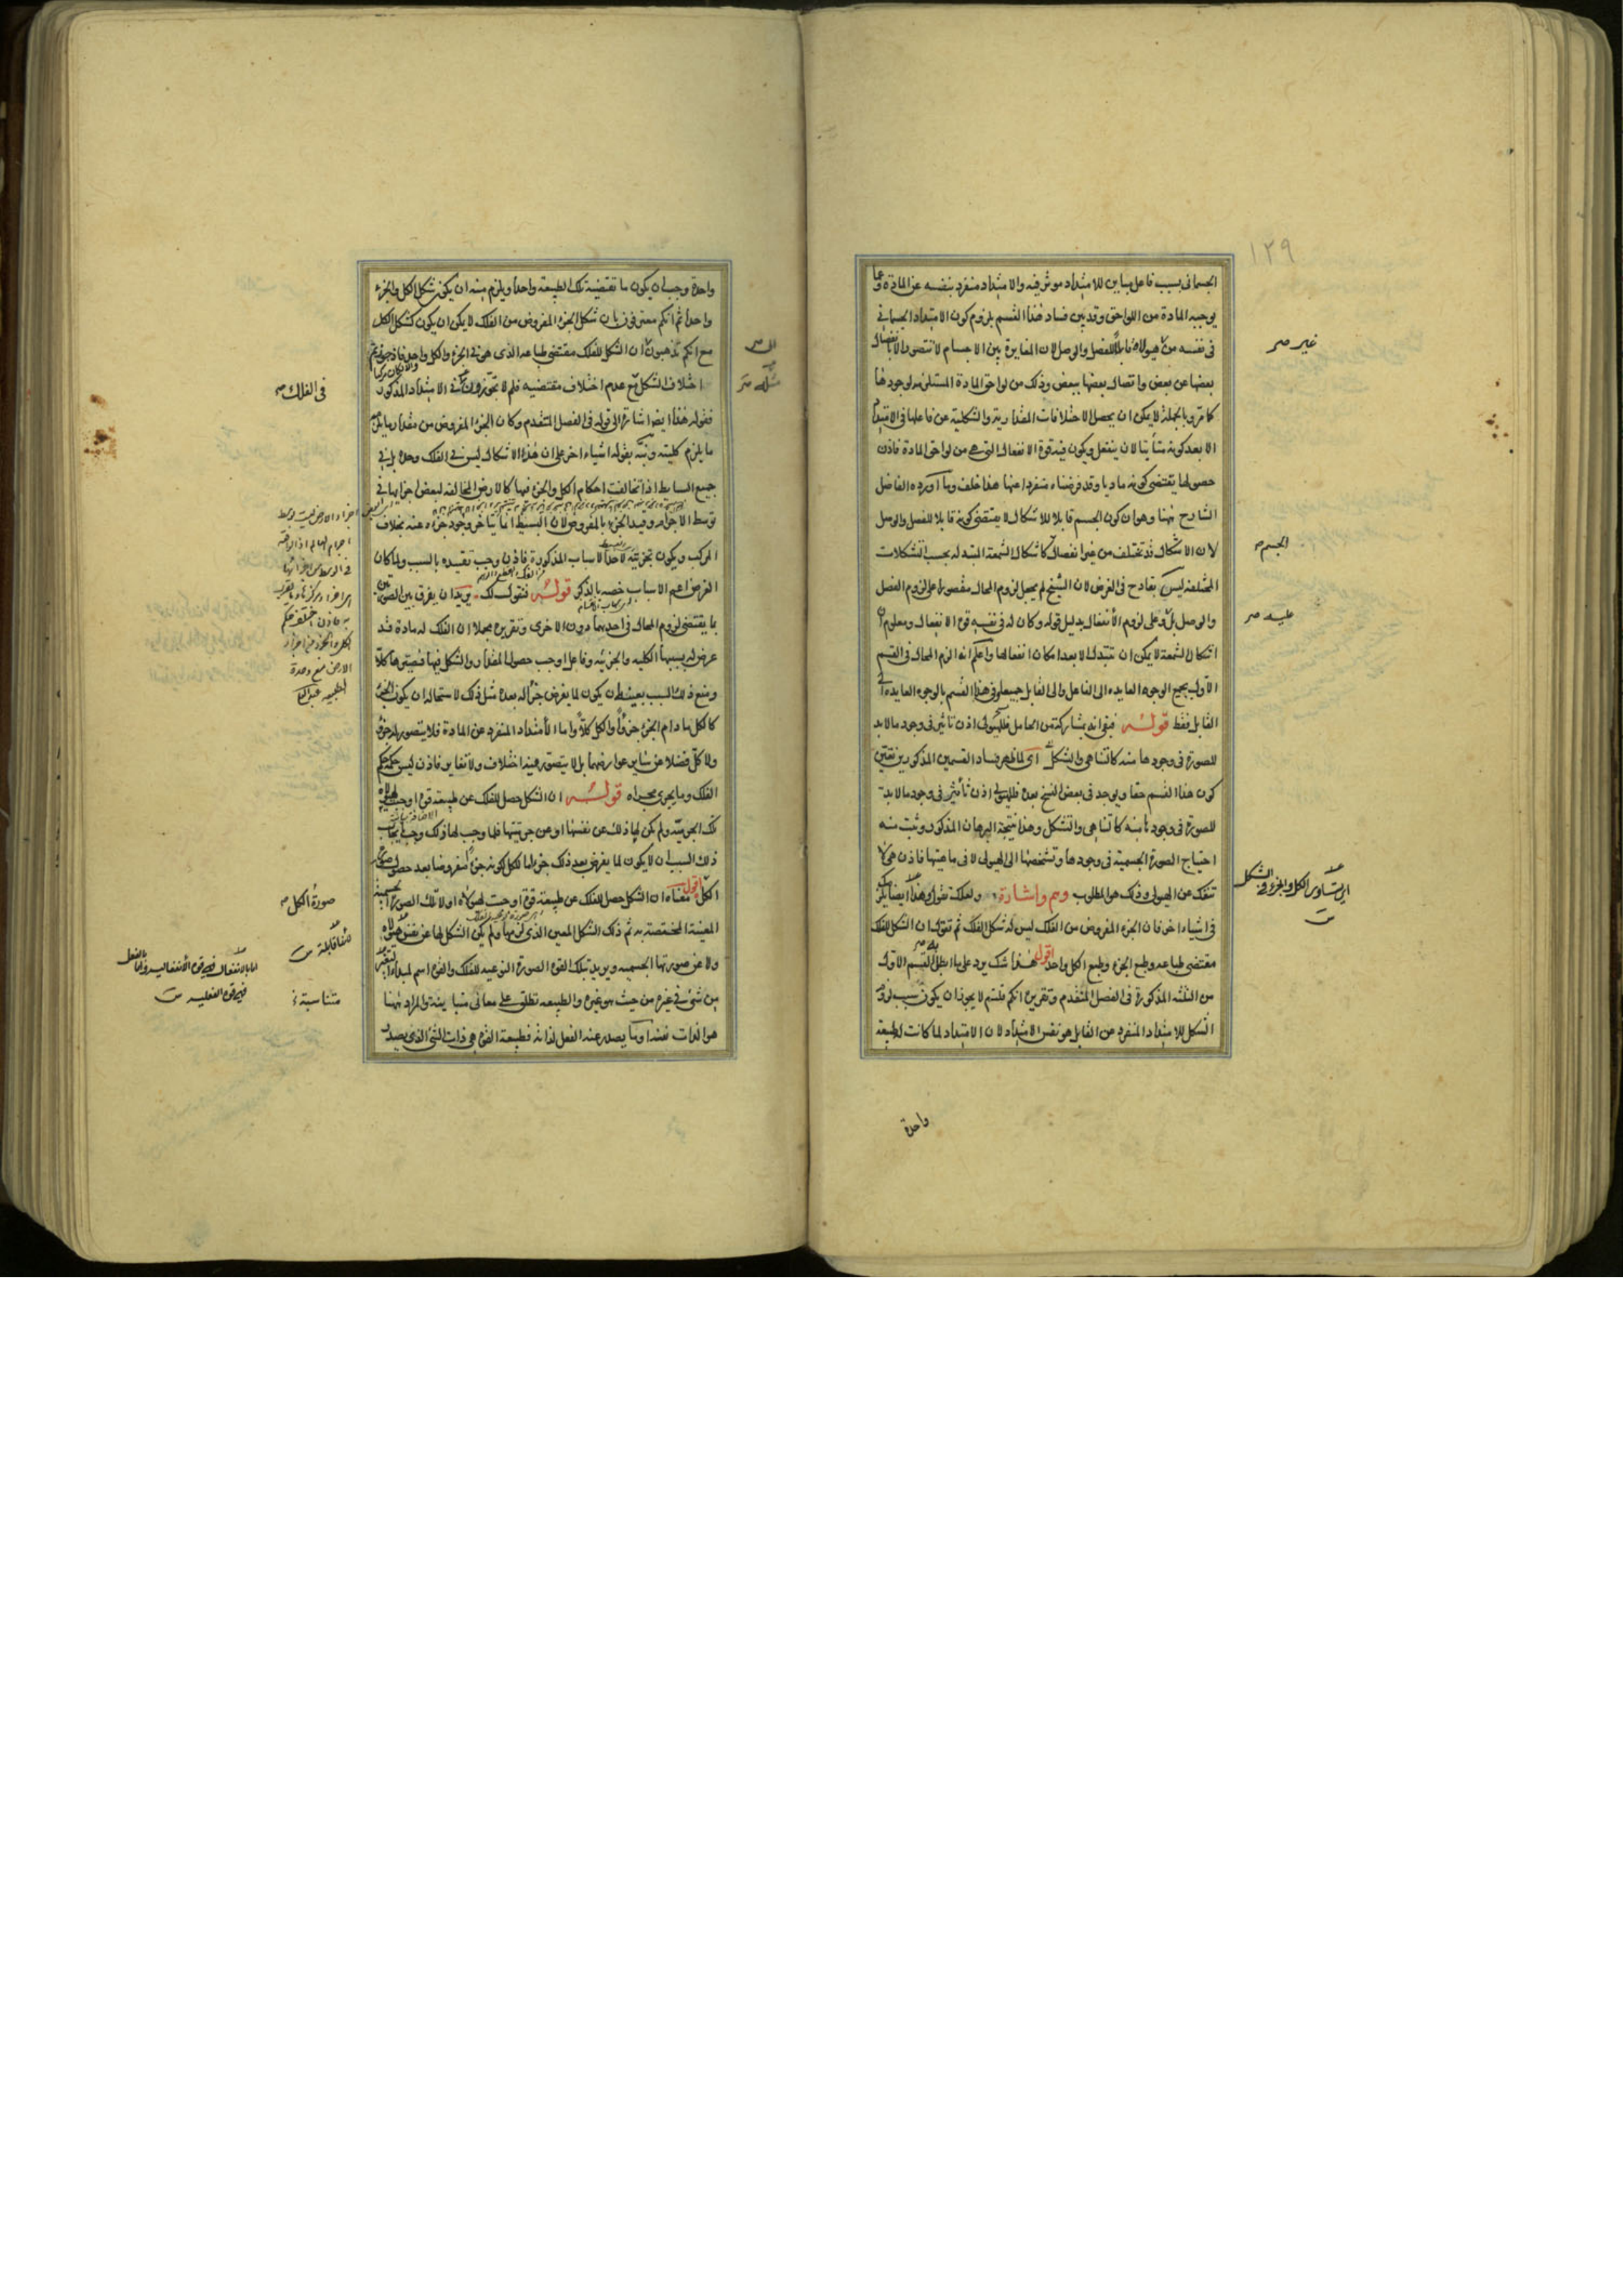 ١٢٩
الجسمانى بسبب فاعل مباين للامتداد موثر فيه والامتداد منفرد بنفسه عن المادة وعما
يوجبه المادة من اللواحق وقد بين فساد هذا القسم بلزوم كون الامتداد الجسمانى
فى نفسه من غير هيولاه قابلا للفصل والوصل لان المغايرة بين الاجسام لا تتصور الا بانفصال
بعضها عن بعض واتصال بعضها ببعض وذلك من لواحق المادة المستلزمة لوجودها
كما مر وبالجملة لا يمكن ان يحصل الاختلافات المقدارية والشكلية عن فاعلها فى الامتداد
الا بعد كونه متأتيا لان ينفعل ويكون فيه قوة الانفعال التى هى من لواحق المادة فاذن
حصولها يقتضى كونه ماديا وقد فرضناه منفردا عنها هذا خلف وما اورده الفاضل
الشارح ههنا وهو ان كون الجسم قابلا للاشكال لا يقتضى كونه قابلا للفصل والوصل
لان الاشكال قد تختلف من غير انفصال كاشكال الشمعة المتبدلة بحسب التشكلات
المختلفة ليس بقادح فى الغرض لان الشيخ لم يجعل لزوم المحال مقصورا على لزوم الفصل
والوصل بل وعلى لزوم الانفعال بدليل قوله وكان له فى نفسه قوة الانفعال ومعلوم ان
اشكال الشمعة لا يمكن ان تتبدل الا بعد امكان انفعالها واعلم انه الزم المحال فى القسم
الاول بجميع الوجوه العايدة الى الفاعل والى القابل جميعا وفى هذا القسم بالوجوه العايدة الى
القابل فقط قوله فبقى انه بمشاركة من الحامل فللهيولى اذن تاثير فى وجود ما لا بد
للصورة فى وجودها منه كالتناهى والتشكل اى لما ظهر فساد القسمين المذكورين تعين
كون هذا القسم حقا ويوجد فى بعض النسخ بعده فللهيولى اذن تأثير فى وجود ما لا بد
للصورة فى وجودها منه كالتناهى والتشكل وهذا نتيجة البرهان المذكور وثبت منه
احتياج الصورة الجسمية فى وجودها وتشخصها الى الهيولى لا فى ماهيتها فاذن هى لا
تنفك عن الهيولى وذلك هو المطلوب وهم واشارة ولعلك تقول وهذا ايضا يلزمك
فى اشياء اخر فان الجزء المفروض من الفلك ليس له شكل الفلك ثم تقول ان الشكل للفلك
مقتضى طباعه وطبع الجزء وطبع الكل واحد اقول هذا شك يورد على ابطال القسم الاول
من الثلثة المذكورة فى الفصل المتقدم وتقريره انكم قلتم لا يجوز ان يكون سبب لزوم
الشكل للامتداد المنفرد عن القابل هو نفس الامتداد لان الامتداد لما كانت لطبيعة
واحدة
غير صح
الجسم
عليه صح
اى تساوى الكل والجزء فى الشكل
واحدة وجب ان يكون ما تقتضيه تلك الطبيعة واحدا ويلزم منه ان يكون شكل الكل والجزء
واحدا ثم انكم معترفون بان شكل الجزء المفروض من الفلك لا يمكن ان يكون كشكل الكل
مع انكم تذهبون الى ان الشكل للفلك مقتضى طباعه الذى هو فى الجزء والكل واحد فاذا جوزتم
اختلاف الشكل مع عدم اختلاف مقتضيه فلم لا تجوزون مثله فى الامتداد المذكور
فقوله هذا ايضا اشارة الى قوله فى الفصل المتقدم وكان الجزء المفروض من مقدار ما يلزمه
ما يلزم كليته ونبه بقوله اشياء اخر على ان هذا الاشكال ليس فى الفلك وحده بل فى
جميع البسايط اذا تخالفت احكام الكل والجزء فيها كالارض المخالفة لبعض اجزايها فى
توسط الاجرام وقيد الجزء بالمفروض لان البسيط انما يتاخر وجود جزءه عنه بخلاف
المركب ويكون تجزئته لاحد الاسباب المذكورة فاذن وجب تقييده بالسبب ولما كان
الفرض اعم الاسباب خصه بالذكر قوله فنقول لك يريد ان يفرق بين الصورتين
بما يقتضى لزوم المحال فى احديهما دون الاخرى وتقريره مجملا ان الفلك له مادة قد
عرض له بسببها الكلية والجزئية وفاعل اوجب حصول المقدار والشكل فيها فصيرها كلا
ومنع ذلك السبب بعينه ان يكون لما يفرض جزءا له بعده مثل ذلك لاستحالة ان يكون الجزء
كالكل ما دام الجزء جزءا والكل كلا واما الامتداد المنفرد عن المادة فلا يتصور له جزء
ولا كل فضلا عن ساير عوارضهما بل لا يتصور فيه اختلاف ولا تغاير فاذن ليس حكمه حكم
الفلك وما يجرى مجراه قوله ان الشكل حصل للفلك عن طبيعة قوة اوجبت لهيولاه
تلك الجرمية ولم يكن لها ذلك عن نفسها او عن جرميتها فلما وجب لها ذلك وجب بايجاب
ذلك السبب ان لا يكون لما يفرض بعد ذلك جزءا ما للكل كونه جزءا مفروضا بعد حصول صورة
الكل اقول معناه ان الشكل حصل للفلك عن طبيعة قوة اوجبت لهيولاه اولا تلك الصورة الجسمية
المعينة المختصة به ثم ذلك الشكل المعين الذى لزمها ولم يكن الشكل لها عن نفس هيولاه
ولا عن صورتها الجسمية ويريد بتلك القوة الصورة النوعية للفلك والقوة اسم لمبدأ التغير
من شئ فى غيره من حيث هو غيره والطبيعة تطلق على معانى متباينة والمراد ههنا
هو الذات نفسه او ما يصدر عنه الفعل لذاته فطبيعة القوة هى ذات الشئ الذى يصدر
فى الفلك
صورة الكل
متناسبة